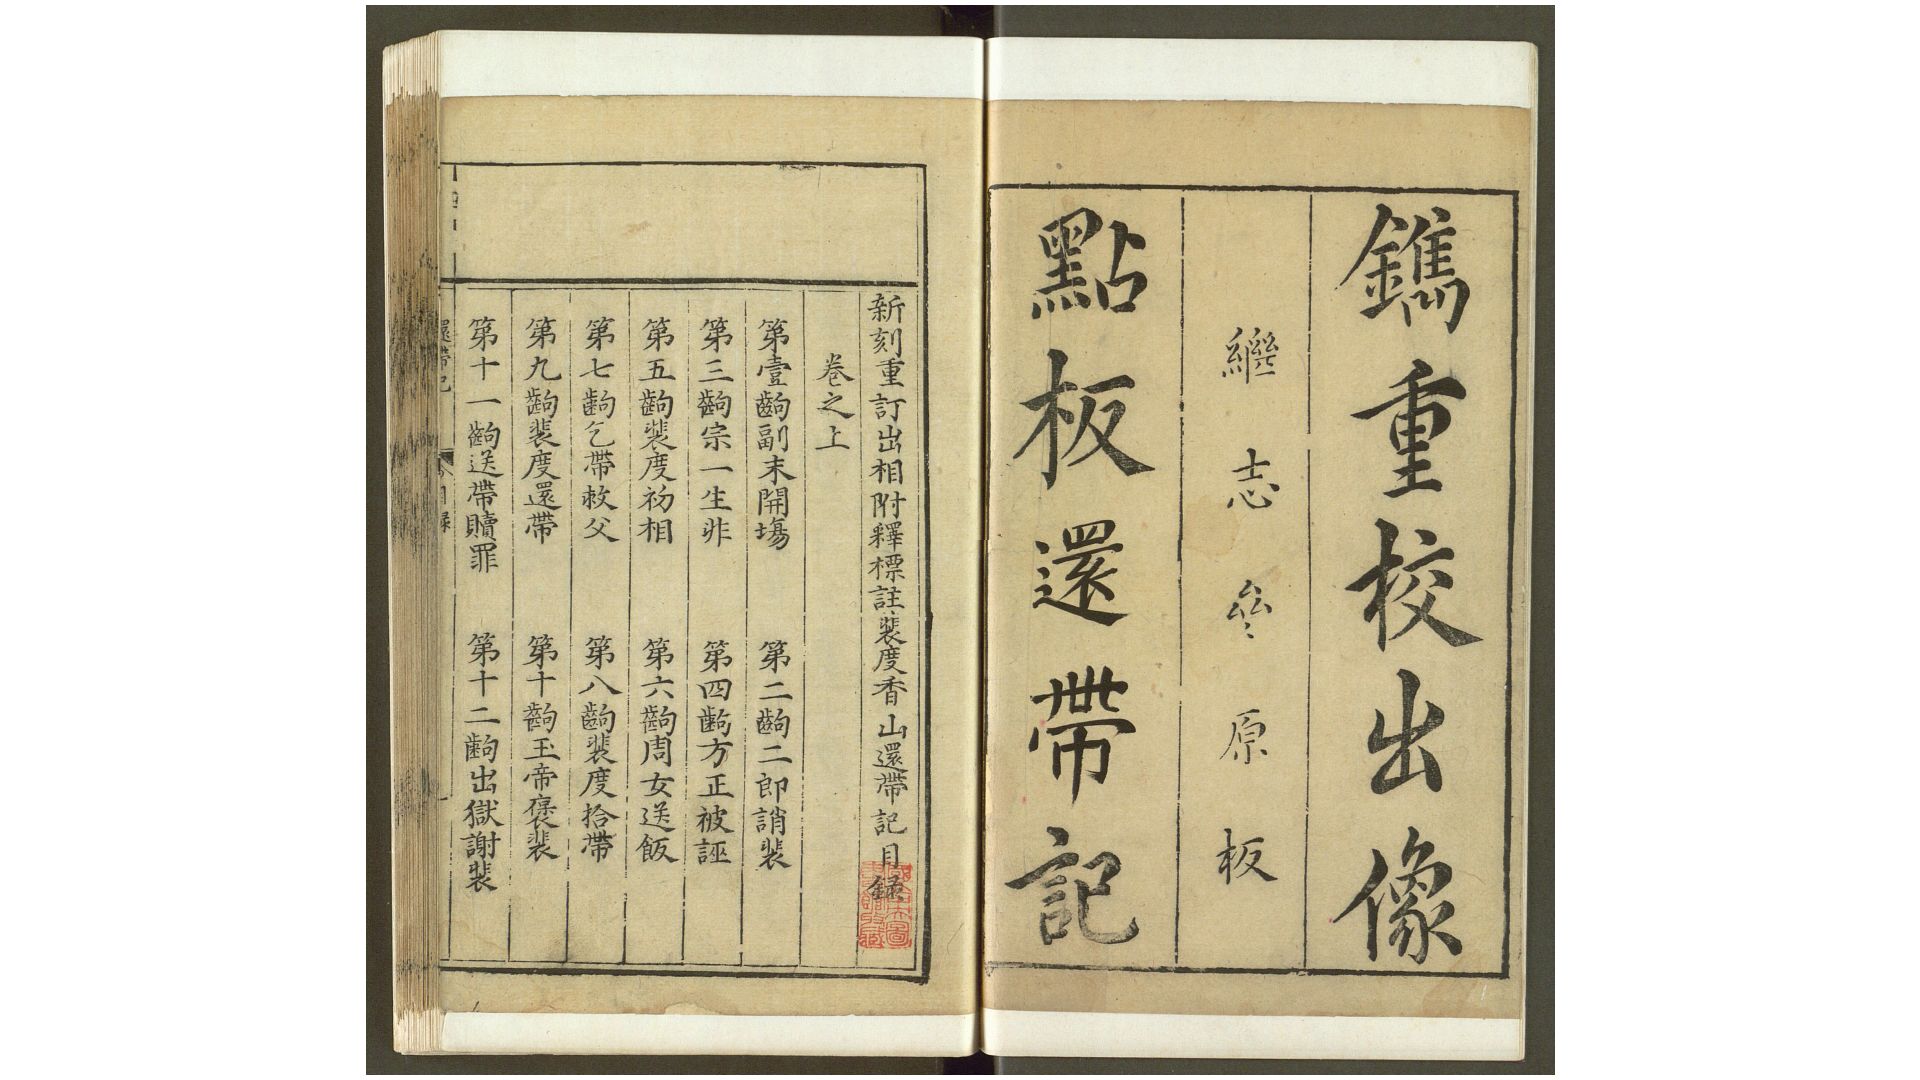 鐫重校出像
繼志叅原板
點板還帶記
新刻重訂出相附釋標註裴度香山還帶記目錄
卷之上
第壹齣副末開塲
第二齣二郎誚裴
第三齣宗一生非
第四齣方正被誣
第五齣裴度初相
第六齣周女送飯
第七齣乞帶救父
第八齣裴度拾帶
第九齣裴度還帶
第十齣玉帝褒裴
第十一齣送帶贖罪
第十二齣出獄謝裴
還帶記